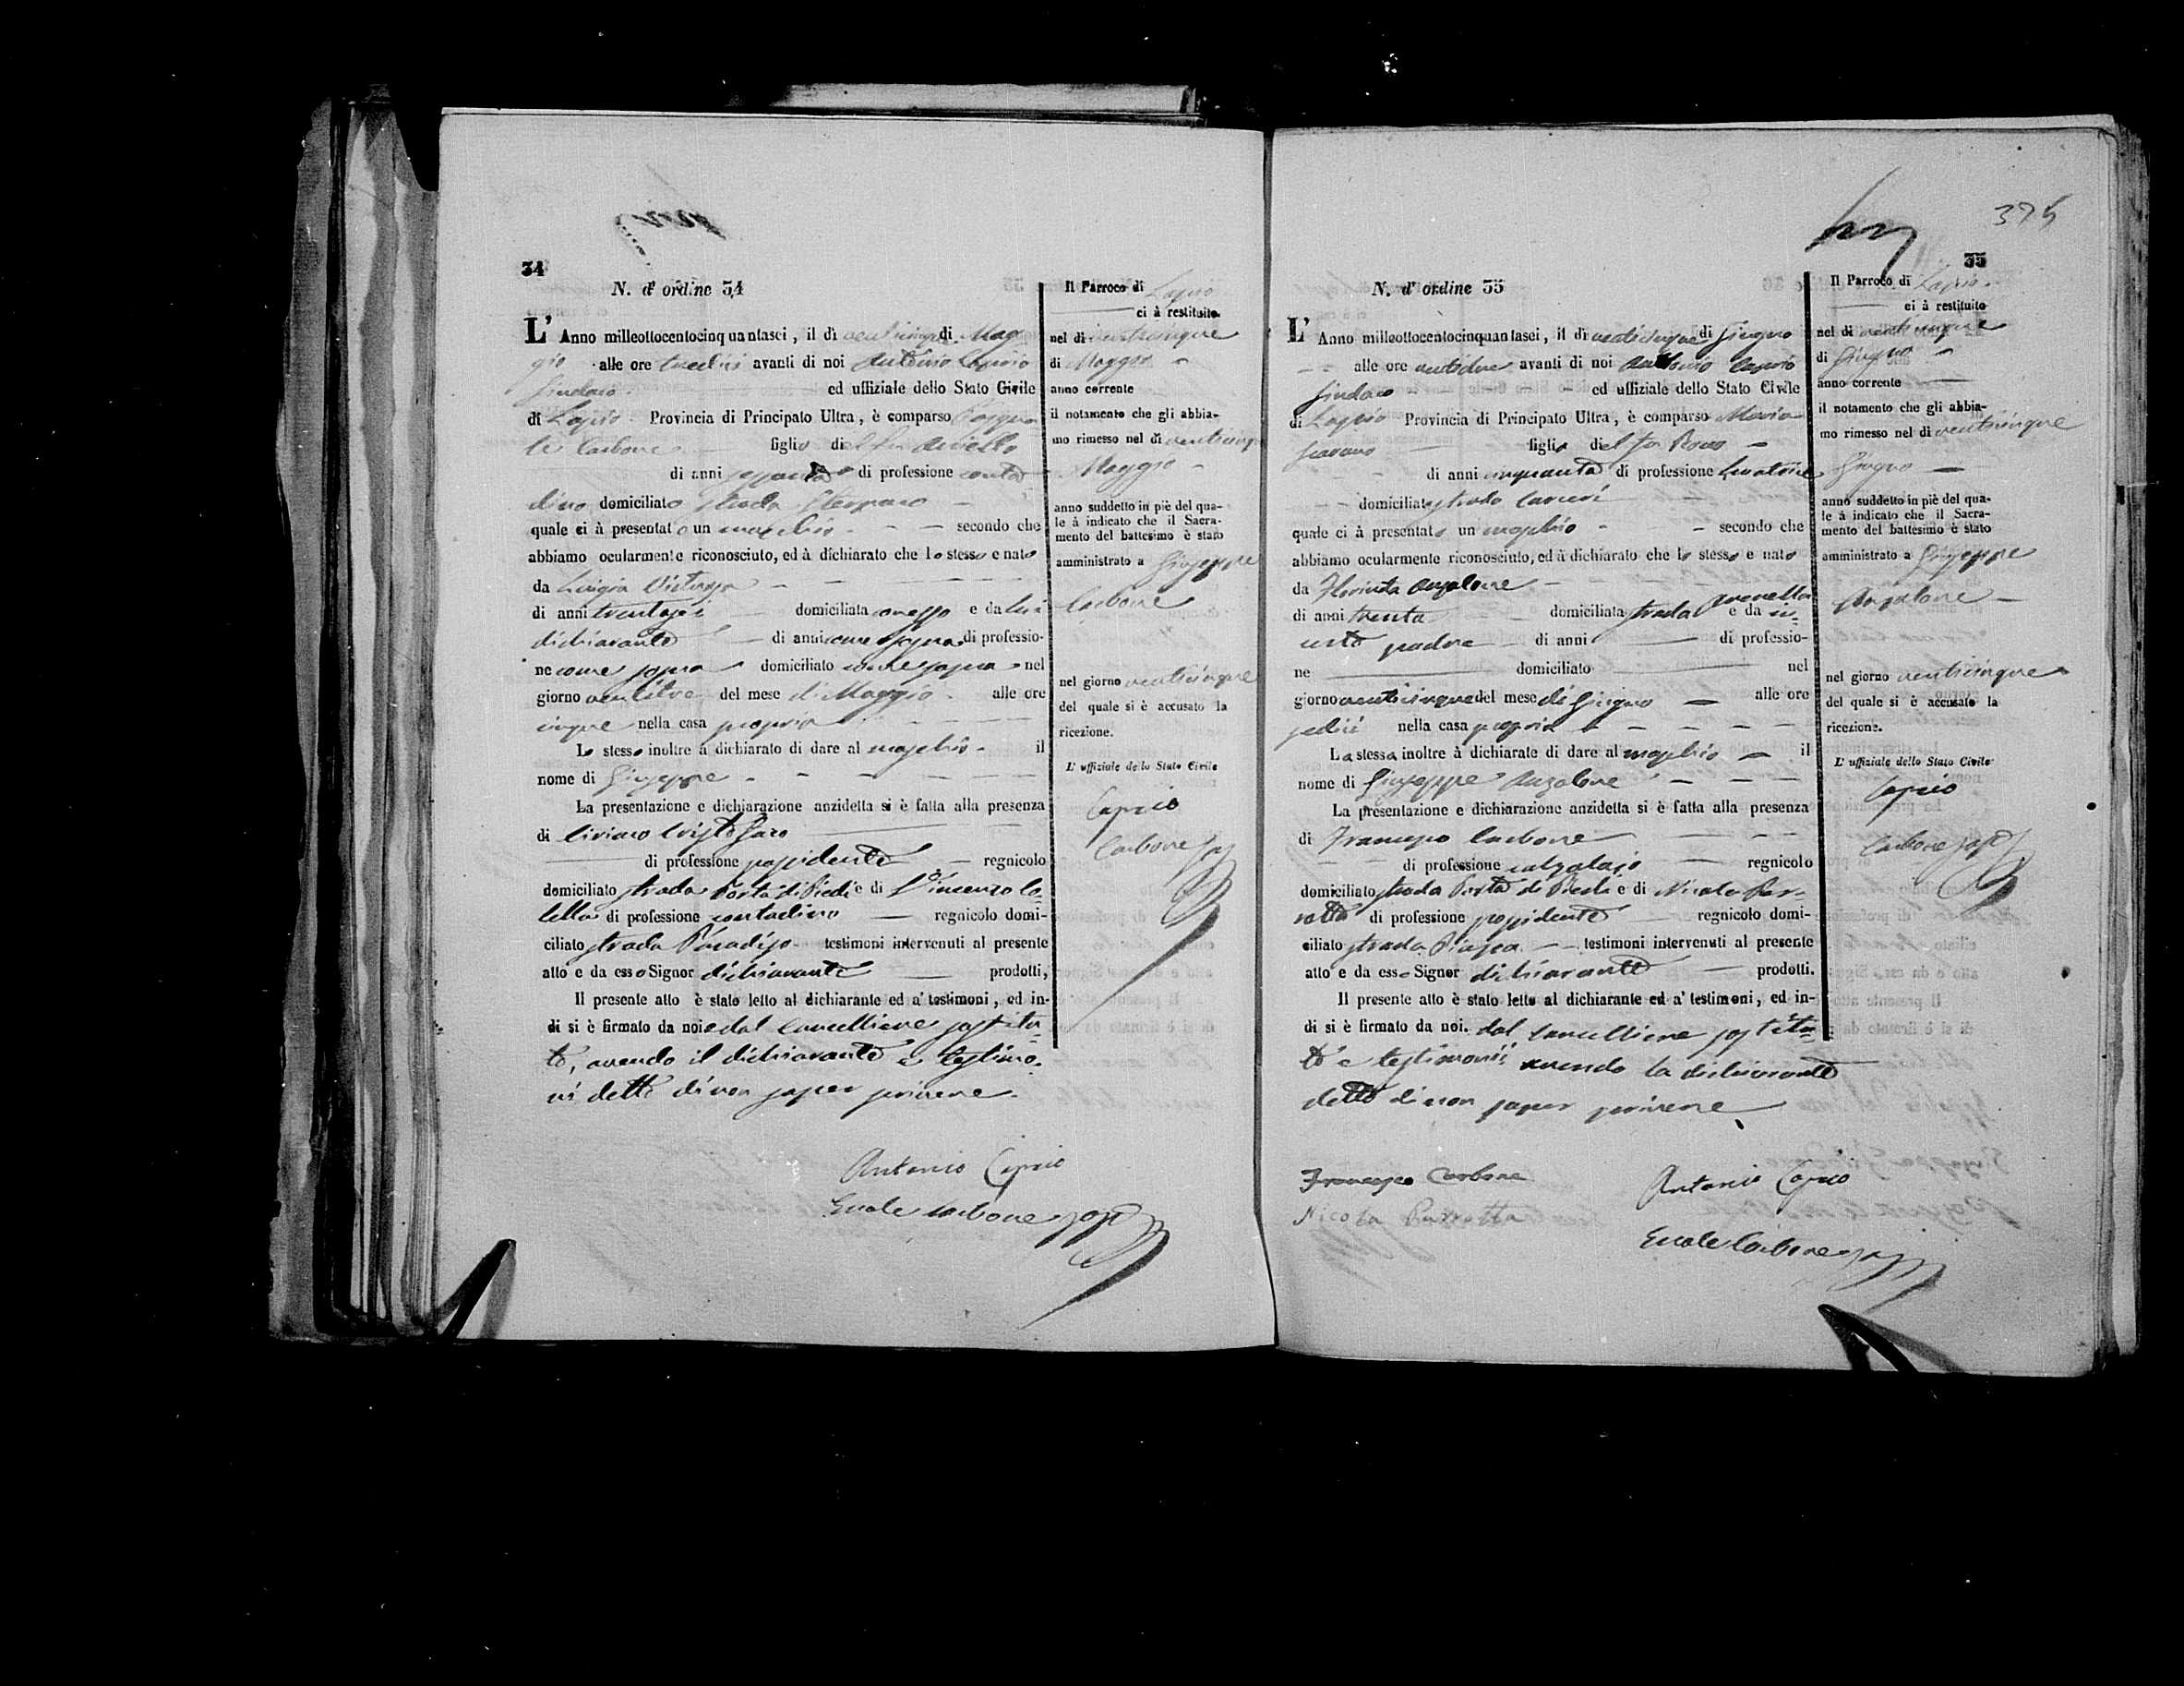 375
34
N. d' ordine 34
L' Anno milleottocentocinquantasei, il dì venticinque di Mag
gio alle ore tredici avanti di noi Antonio Caprio
Sindaco ed uffiziale dello Stato Civile
di Lapio Provincia di Principato Ultra, è comparso Pasqua
le Carbone figlio del fu Aniello
di anni sessanta di professione conta
dino domiciliato strada
quale ci à presentato un maschio secondo che
abbiamo ocularmente riconosciuto, ed à dichiarato che lo stesso e nato
da Luigia
di anni trentasei domiciliata ove sopra e da lui
dichiarante di anni come sopra di professio-
ne come sopra domiciliato come sopra nel
giorno ventitre del mese di Maggio alle ore
cinque nella casa propria
Lo stesso inoltre à dichiarato di dare al maschio il
nome di Giuseppe
La presentazione e dichiarazione anzidetta si è fatta alla presenza
di Ciriaco Cristofaro
di professione possidente regnicolo
domiciliato strada Porta di Piedi e di Vincenzo Co-
lella di professione contadino regnicolo domi-
ciliato strada Paradiso testimoni intervenuti al presente
atto e da esso Signor dichiarante prodotti,
Il presente atto è stato letto al dichiarante ed a' testimoni, ed in-
di si è firmato da noi e dal Cancelliere sostitu-
to, avendo il dichiarante e testimo-
ni detto di non saper scrivere.
Antonio Caprio
Ercole Carbone sost
Il Parroco di Lapio
ci à restituito
nel dì venticinque
di Maggio
anno corrente
il notamento che gli abbia-
mo rimesso nel dì venticinq
Maggio
anno suddetto in piè del qua-
le à indicato che il Sacra-
mento del battesimo è stato
amministrato a Giuseppe
Carbone
nel giorno venticinque
del quale si è accusato la
ricezione.
L' uffiziale dello Stato Civile
Caprio
Carbone sost
35
N. d' ordine 35
L' Anno milleottocentocinquantasei, il dì venticinque di Giugno
alle ore ventidue avanti di noi Antonio Caprio
Sindaco ed uffiziale dello Stato Civile
di Lapio Provincia di Principato Ultra, è comparso Maria
figlia del fu Rocco
di anni cinquanta di professione Levatrice
domiciliata strada Carceri
quale ci à presentato un maschio secondo che
abbiamo ocularmente riconosciuto, ed à dichiarato che lo stesso e nato
da Florinda Anzalone
di anni trenta domiciliata strada e da in-
certo padre di anni di professio-
ne domiciliato nel
giorno venticinque del mese di Giugno alle ore
sedici nella casa propria
La stessa inoltre à dichiarato di dare al maschio il
nome di Giuseppe Anzalone
La presentazione e dichiarazione anzidetta si è fatta alla presenza
di Francesco Carbone
di professione calzolajo regnicolo
domiciliato strada Porta di Piedi e di Nicola Bar-
rotta di professione possidente regnicolo domi-
ciliato strada Piazza testimoni intervenuti al presente
atto e da essa Signor dichiarante prodotti.
Il presente atto è stato letto al dichiarante ed a' testimoni, ed in-
di si è firmato da noi. dal Cancelliere sostitu-
to e testimonii avendo la dichiarante
detto di non saper scrivere
Francesco Carbone
Nicola Barrotta
Antonio Caprio
Ercole Carbone sost
Il Parroco di Lapio
ci à restituito
nel dì venticinque
di Giugno
anno corrente
il notamento che gli abbia-
mo rimesso nel dì venticinque
Giugno
anno suddetto in piè del qua-
le à indicato che il Sacra-
mento del battesimo è stato
amministrato a Giuseppe
Anzalone
nel giorno venticinque
del quale si è accusato la
ricezione.
L' uffiziale dello Stato Civile
Caprio
Carbone sost